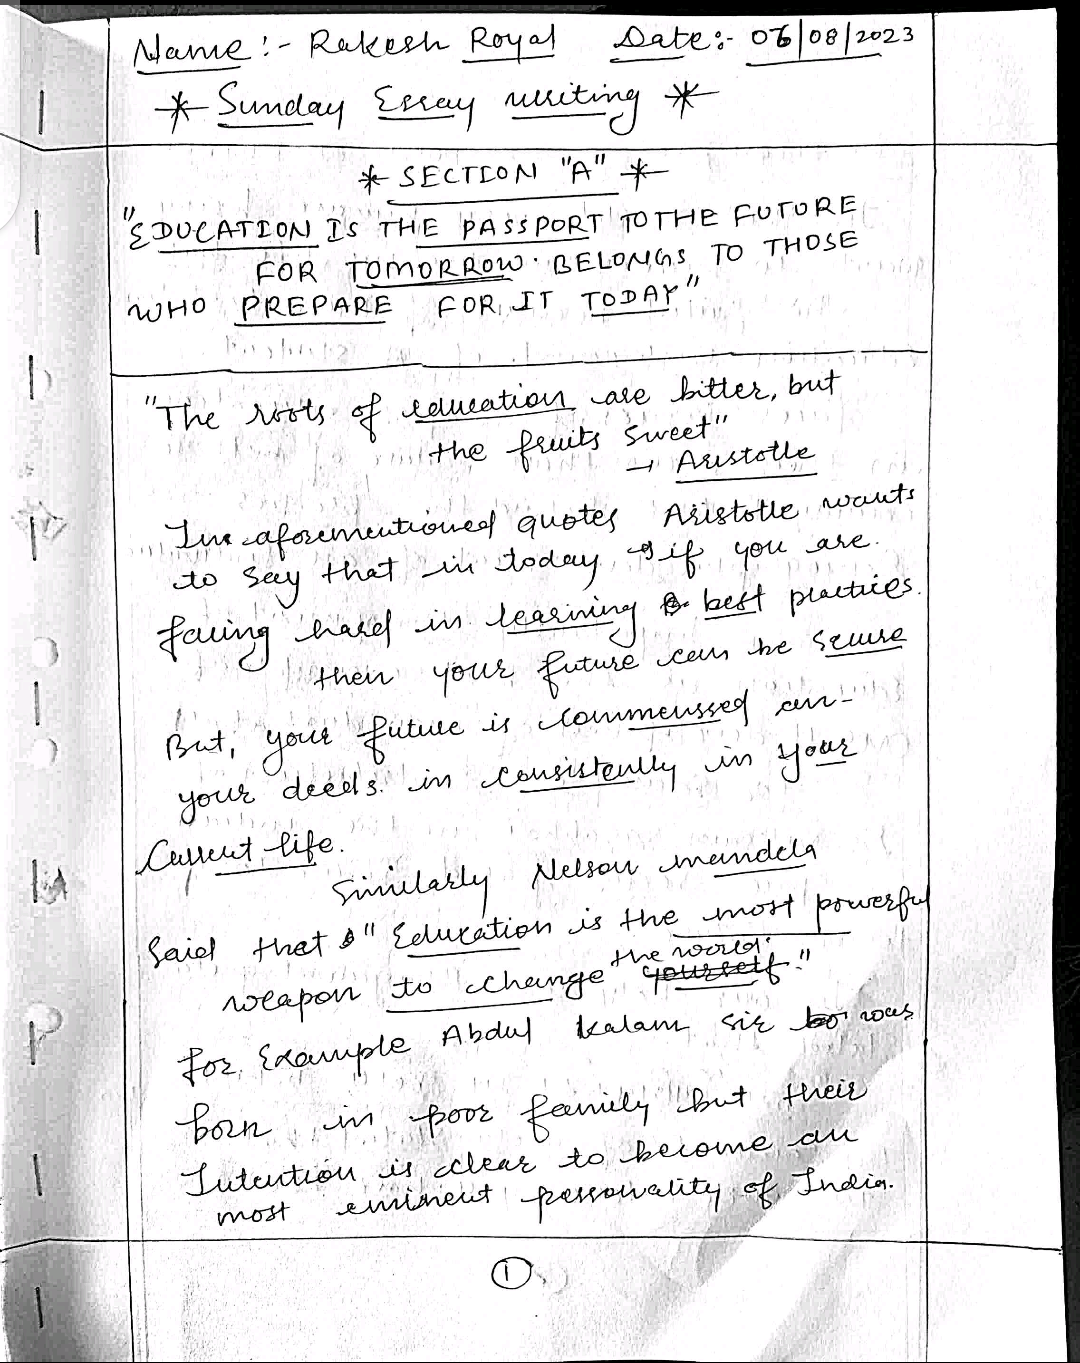 Name :- Rakesh Royal Date:- 06/08/2023
* Sunday Essay writing *
* SECTION "A" *
"EDUCATION IS THE PASSPORT TO THE FUTURE
FOR TOMORROW. BELONGS TO THOSE
WHO PREPARE FOR IT TODAY"
"The roots of education are bitter, but
the fruits sweet"
→ Aristotle
aforementioned quotes Aristotle wants
to say that in today if you are
facing hard in learning best practices.
then your future can be secure
But, your future is commenssed on-
your deeds. in consistently in your
Current life.
Similarly Nelson mandela
Said that "Education is the most powerful
weapon to change the world."
for Example Abdul kalam sir was
born in poor family but their
Intention is clear to become an
most eminent personality of India.
1